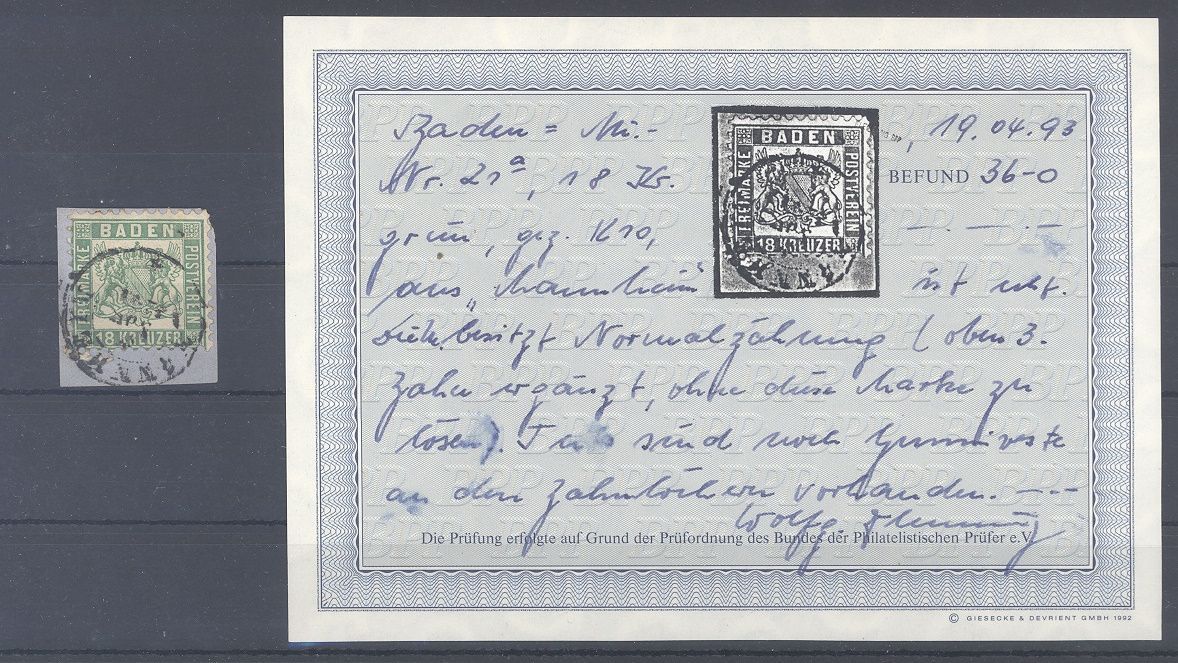 BADEN
FREIMARKE
POSTVEREIN
18 KREUZER
Baden = Mi.-
Nr. 21a, 18 Kr.
grün, gez. K10,
aus "Mannheim"
BADEN
FREIMARKE
POSTVEREIN
18 KREUZER
, 19.04.93
BEFUND 36-0
ist echt.
besitzt Normalzähnung (oben 3.
Zahn ergänzt, ohne diese Marke zu
lösen). sind noch Gummireste
an den Zahnlöchern vorhanden.
Wolfg.
Die Prüfung erfolgte auf Grund der Prüfordnung des Bundes der Philatelistischen Prüfer e.V.
© GIESECKE & DEVRIENT GMBH 1992